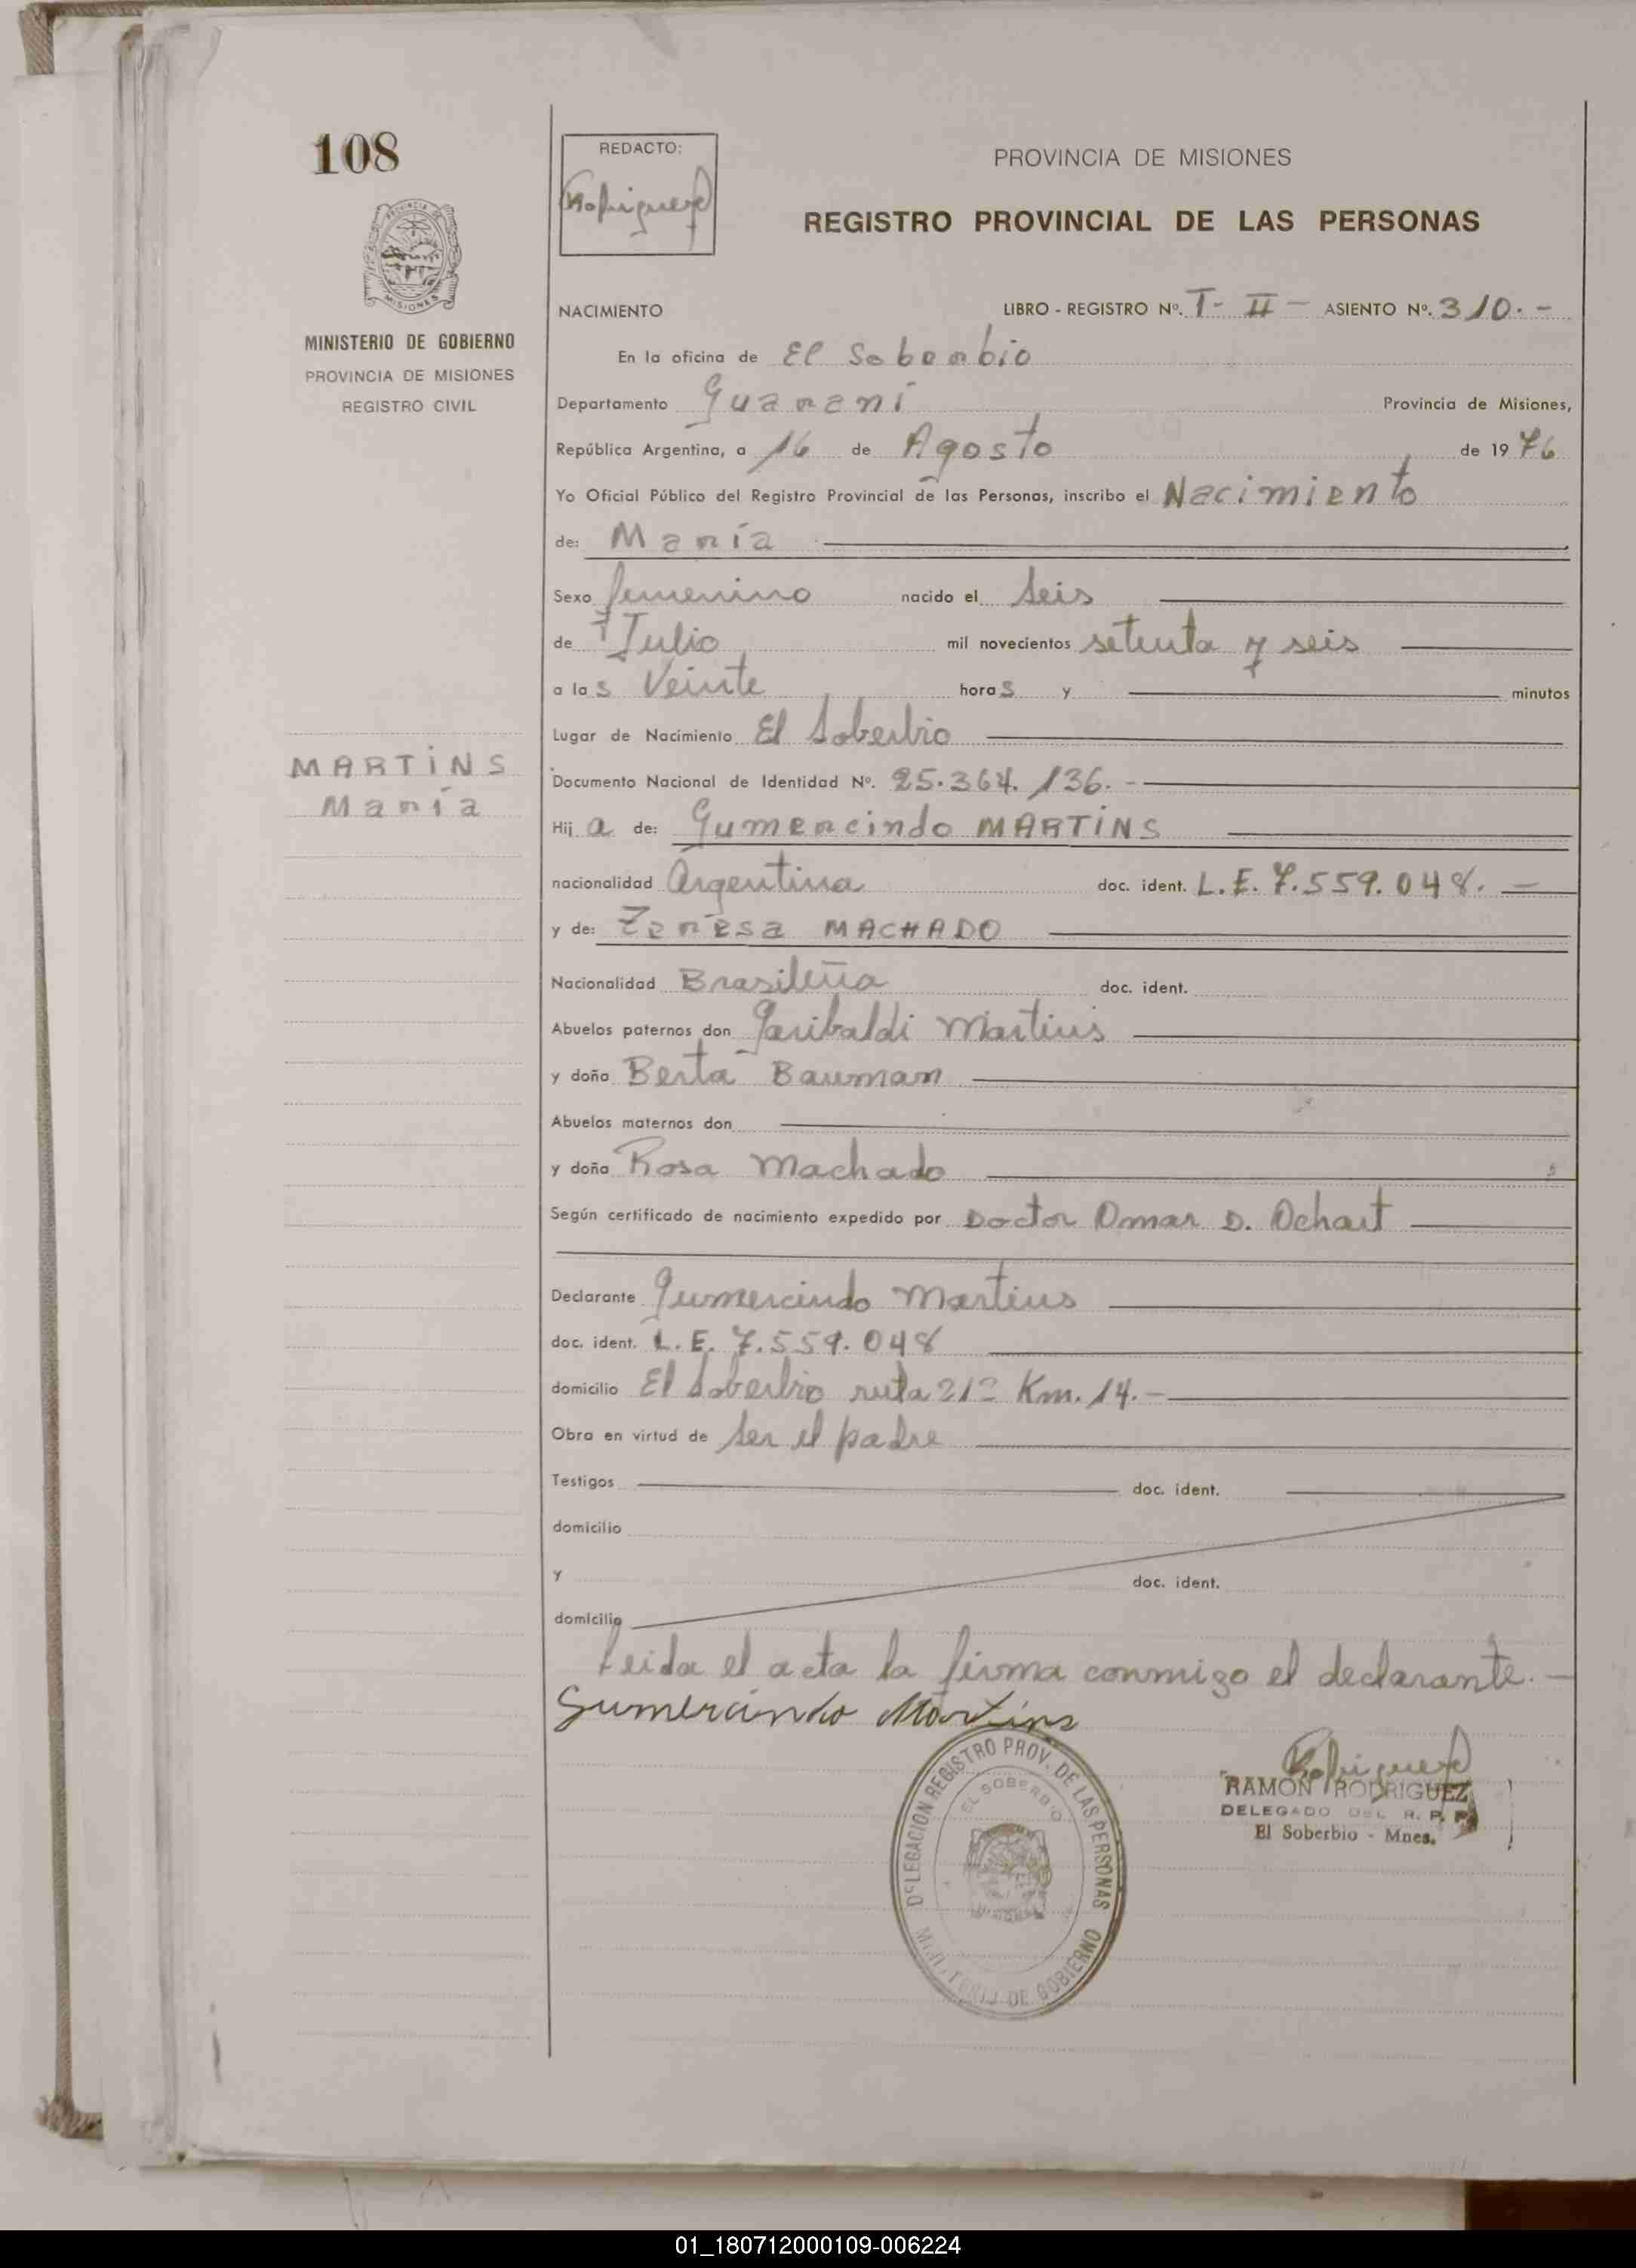 108
REDACTO:
Rodriguez
PROVINCIA DE MISIONES
REGISTRO PROVINCIAL DE LAS PERSONAS
MINISTERIO DE GOBIERNO
PROVINCIA DE MISIONES
REGISTRO CIVIL
NACIMIENTO LIBRO - REGISTRO Nº. T- II - ASIENTO Nº. 310.-
En la oficina de El Soberbio
Departamento Guaraní Provincia de Misiones,
República Argentina, a 16 de Agosto de 1976
Yo Oficial Público del Registro Provincial de las Personas, inscribo el Nacimiento
de: María
Sexo femenino nacido el seis
de Julio mil novecientos setenta y seis
a las Veinte horas y minutos
Lugar de Nacimiento El Soberbio
MARTINS
María
Documento Nacional de Identidad Nº. 25.364.136.-
Hija de: Gumercindo MARTINS
nacionalidad Argentina doc. ident. L.E. 7.559.048.-
y de: Teresa MACHADO
Nacionalidad Brasileña doc. ident.
Abuelos paternos don Garibaldi Martins
y doña Berta Baumam
Abuelos maternos don
y doña Rosa Machado
Según certificado de nacimiento expedido por Doctor Omar D. Ochart
Declarante Gumercindo Martins
doc. ident. L.E. 7.559.048
domicilio El Soberbio ruta 212 Km. 14.-
Obra en virtud de ser el padre
Testigos doc. ident.
domicilio
y doc. ident.
domicilio
Leida el acta la firma conmigo el declarante.-
Gumercindo Martins
DELEGACION REGISTRO PROV. DE LAS PERSONAS
EL SOBERBIO
MISIONES
MINISTERIO DE GOBIERNO
Rodriguez
RAMON RODRIGUEZ
DELEGADO DEL R. P. P.
El Soberbio - Mnes.
01_180712000109-006224